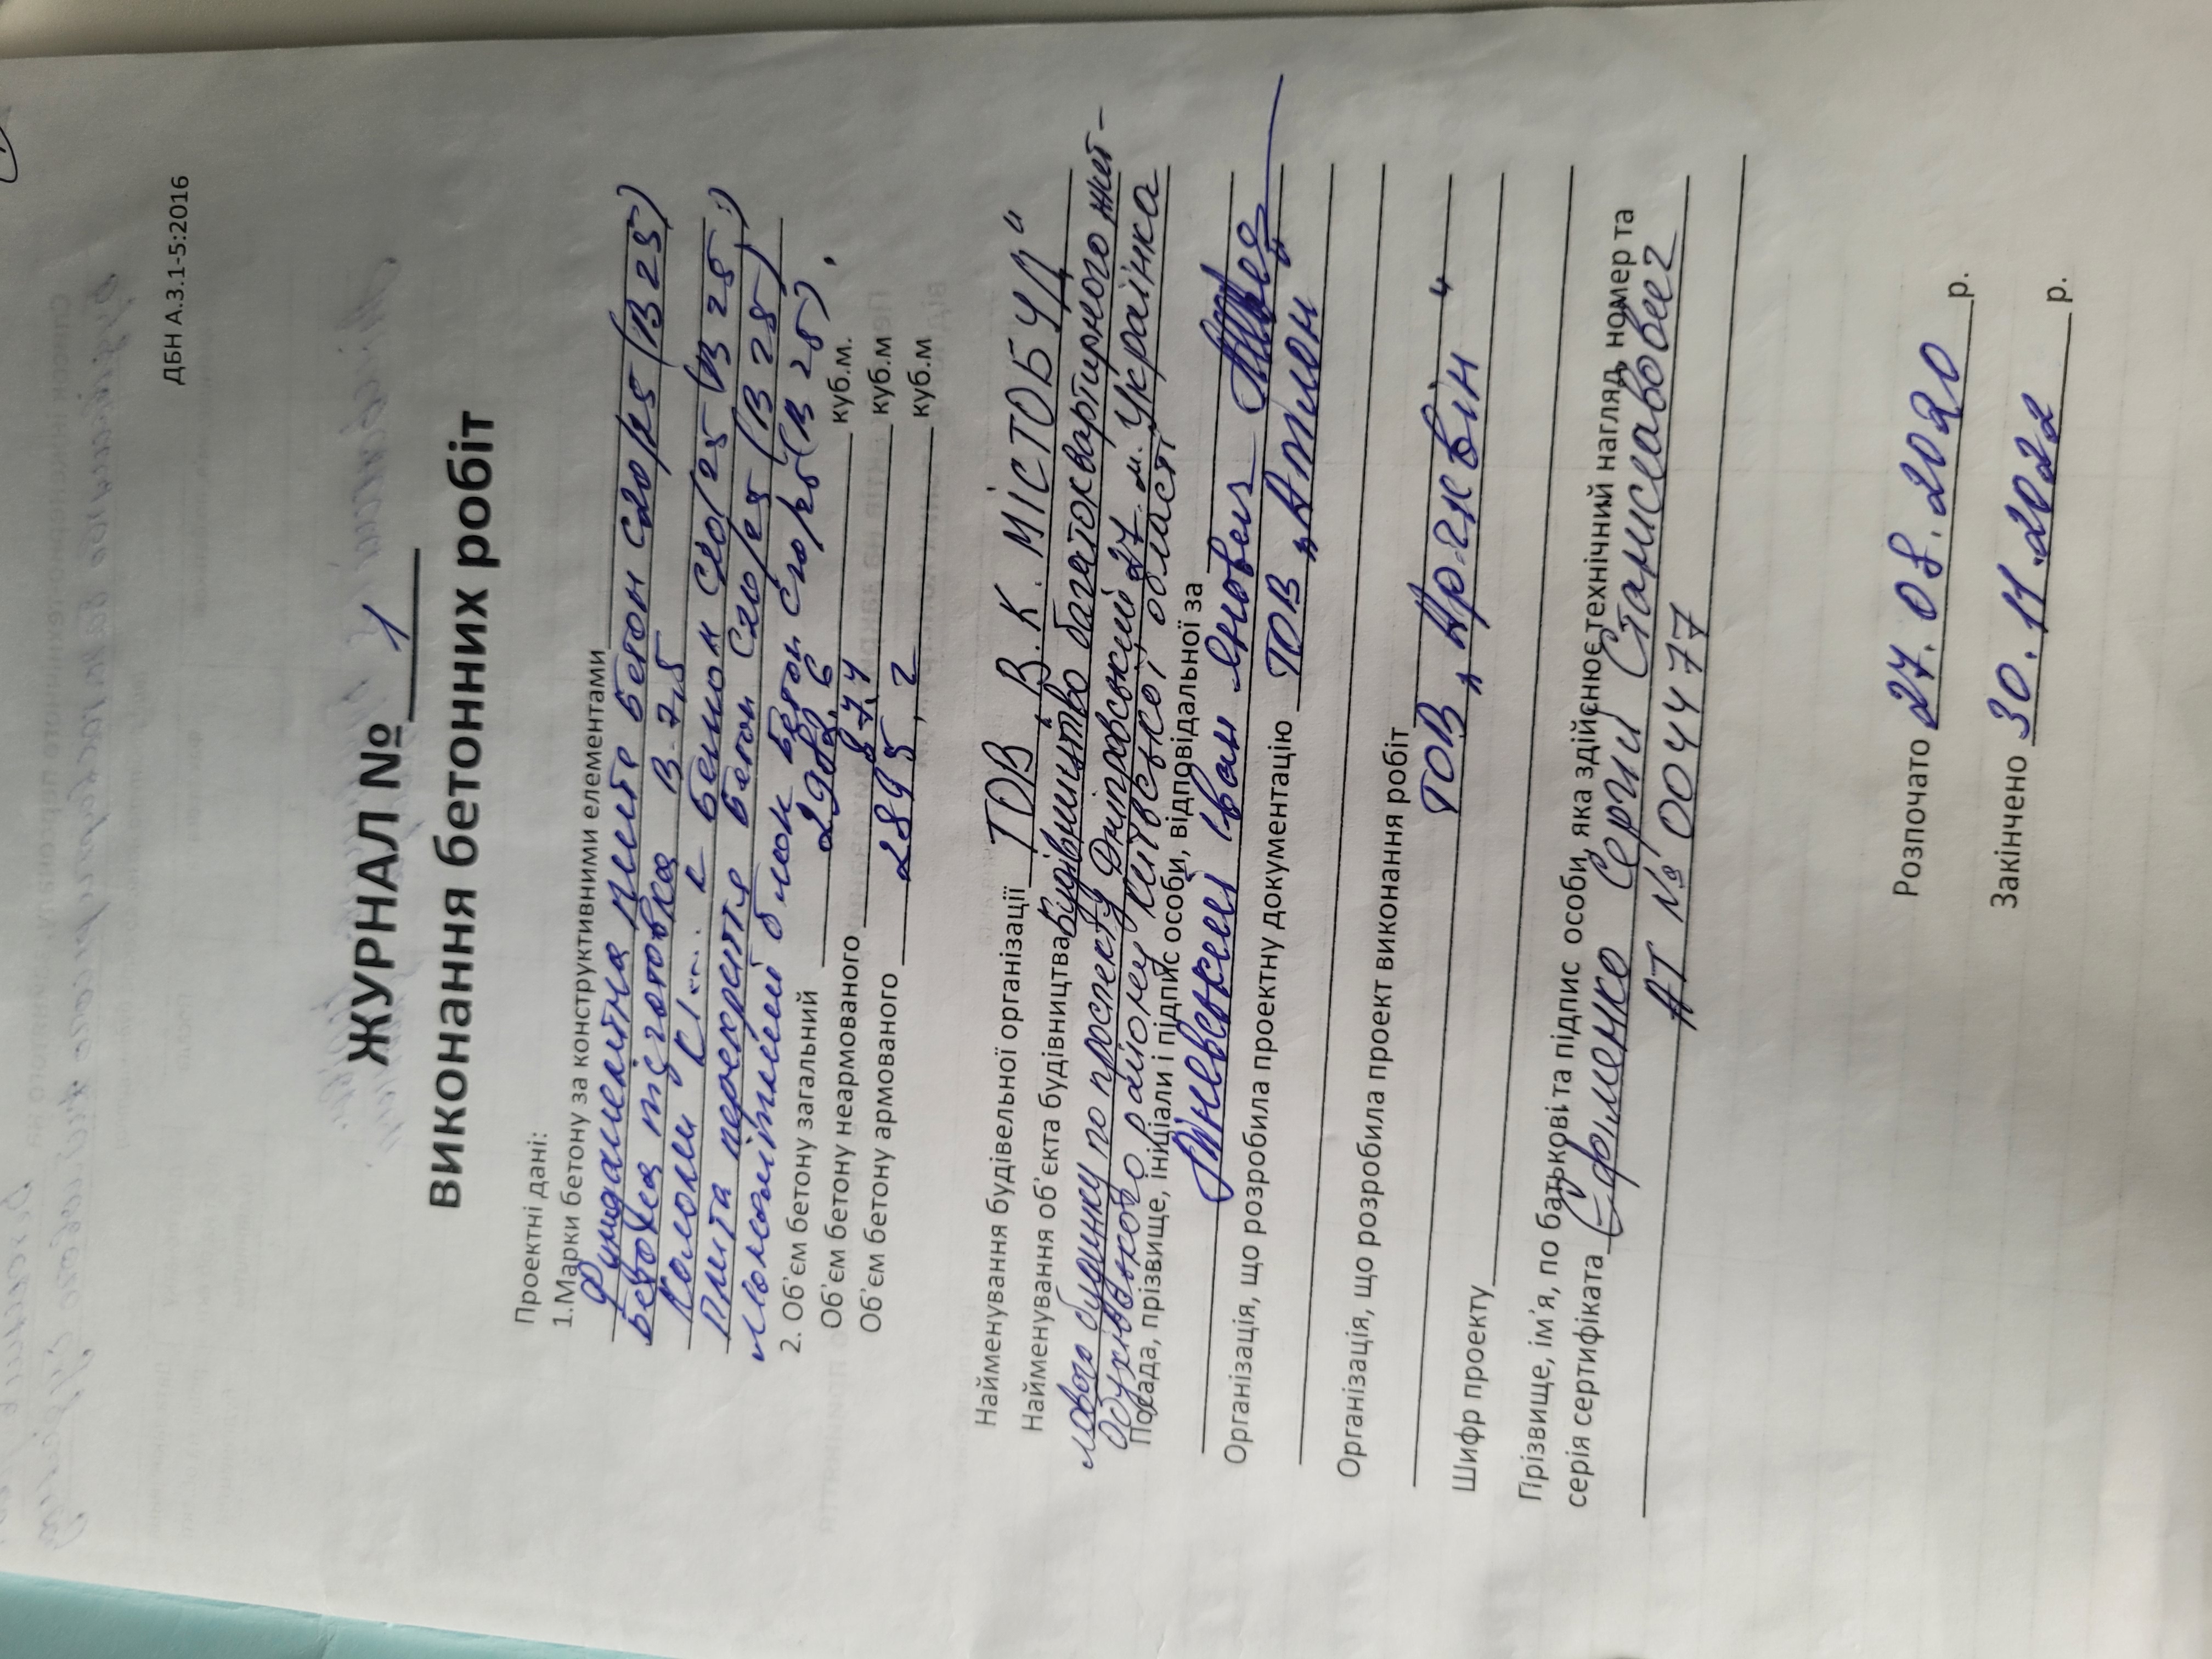 ДБН А.3.1-5:2016
ЖУРНАЛ № 1
виконання бетонних робіт
Проектні дані:
1.Марки бетону за конструктивними елементами
Фундаментна плита бетон С20/25 (В 25)
Бетонна підготовка В 7,5
Колони К1... К бетон С20/25 (В 25)
Плита перекриття бетон С20/25 (В 25)
монолітний блок бетон С20/25 (В 25).
2. Об'єм бетону загальний куб.м.
Об'єм бетону неармованого 87,4 куб.м
Об'єм бетону армованого 2895,2 куб.м
Найменування будівельної організації ТОВ „В.К. МІСТОБУД"
Найменування об'єкта будівництва Будівництво багатоквартирного жит-
лового будинку по проспекту Дніпровський 27 м. Українка
Обухівського району Київської області
Посада, прізвище, ініціали і підпис особи, відповідальної за
Іван
Організація, що розробила проектну документацію ТОВ „Атлон"
Організація, що розробила проект виконання робіт
ТОВ „
Шифр проекту
Прізвище, ім'я, по батькові та підпис особи, яка здійснює технічний нагляд, номер та
серія сертифіката Єфименко Сергій Станиславович
АТ № 004477
Розпочато 27.08.2020 р.
Закінчено 30.11.2022 р.